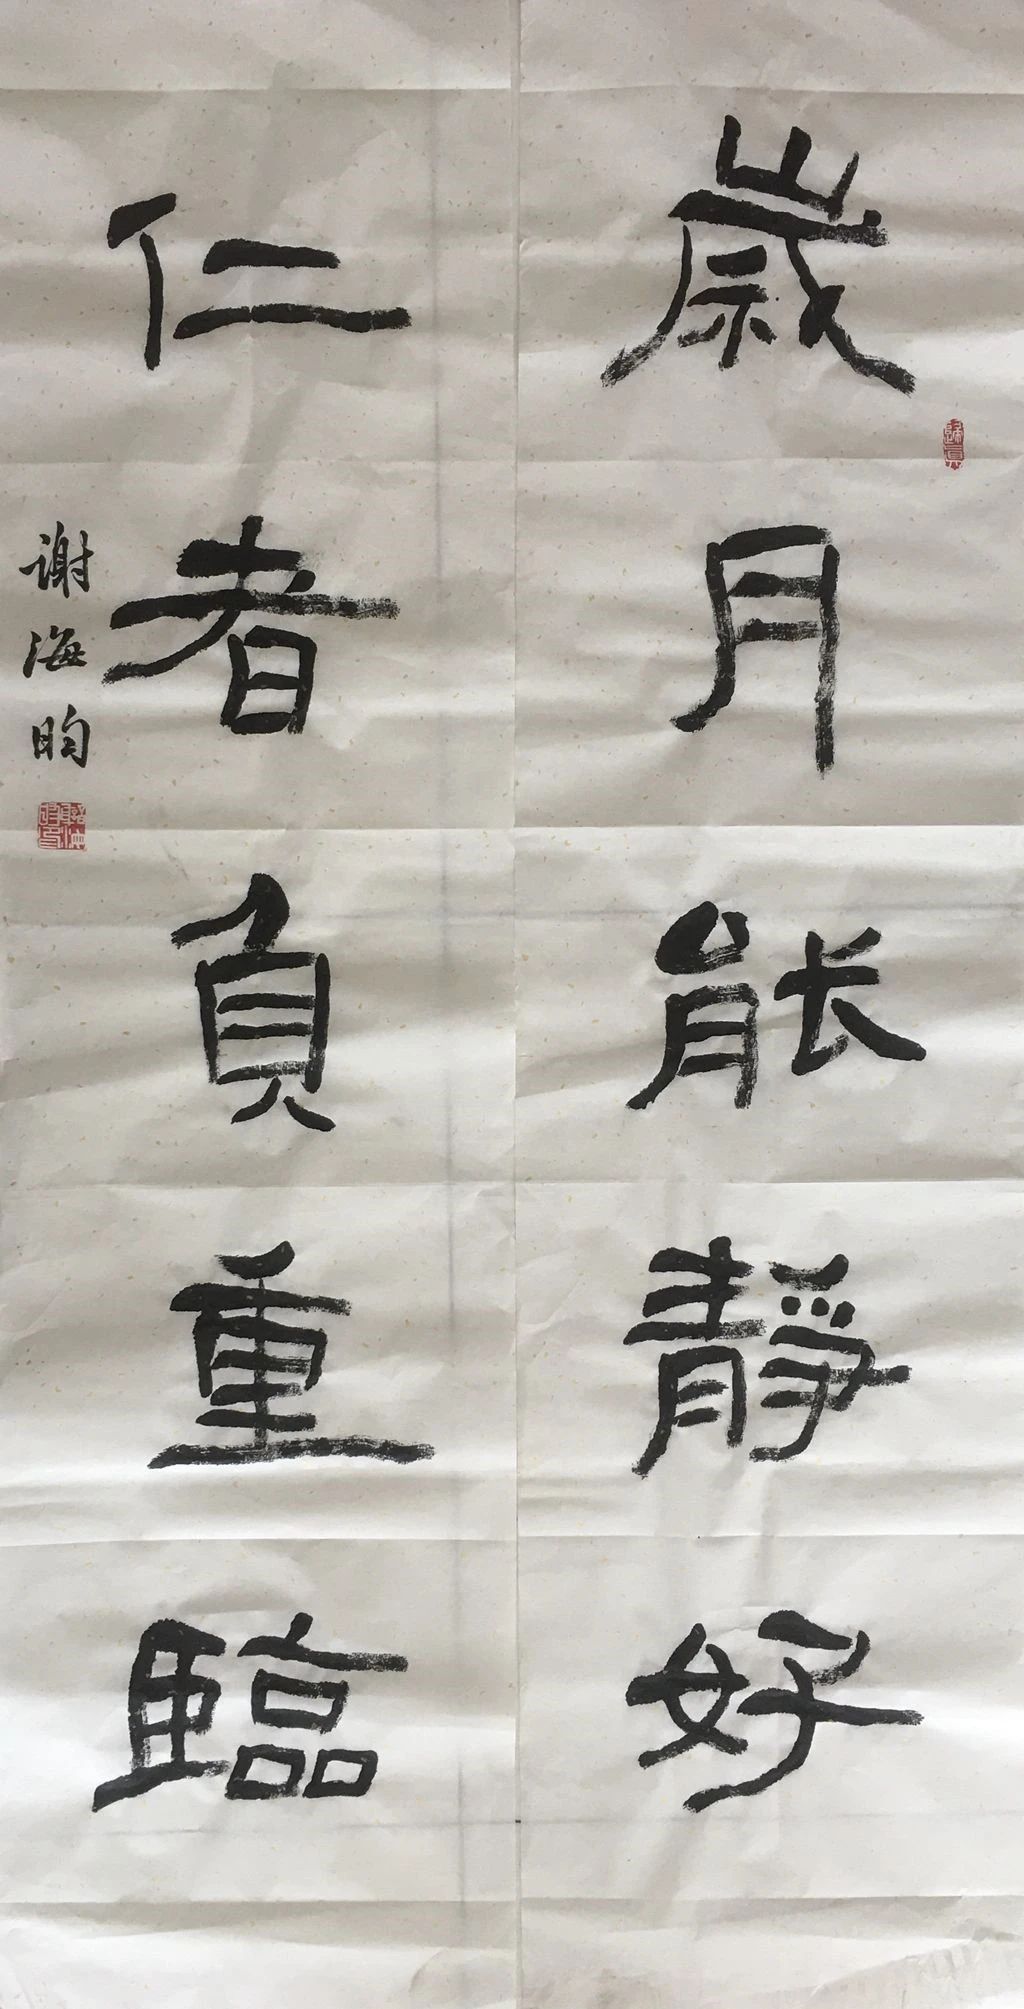 歲月能靜好
仁者負重臨
谢海昀